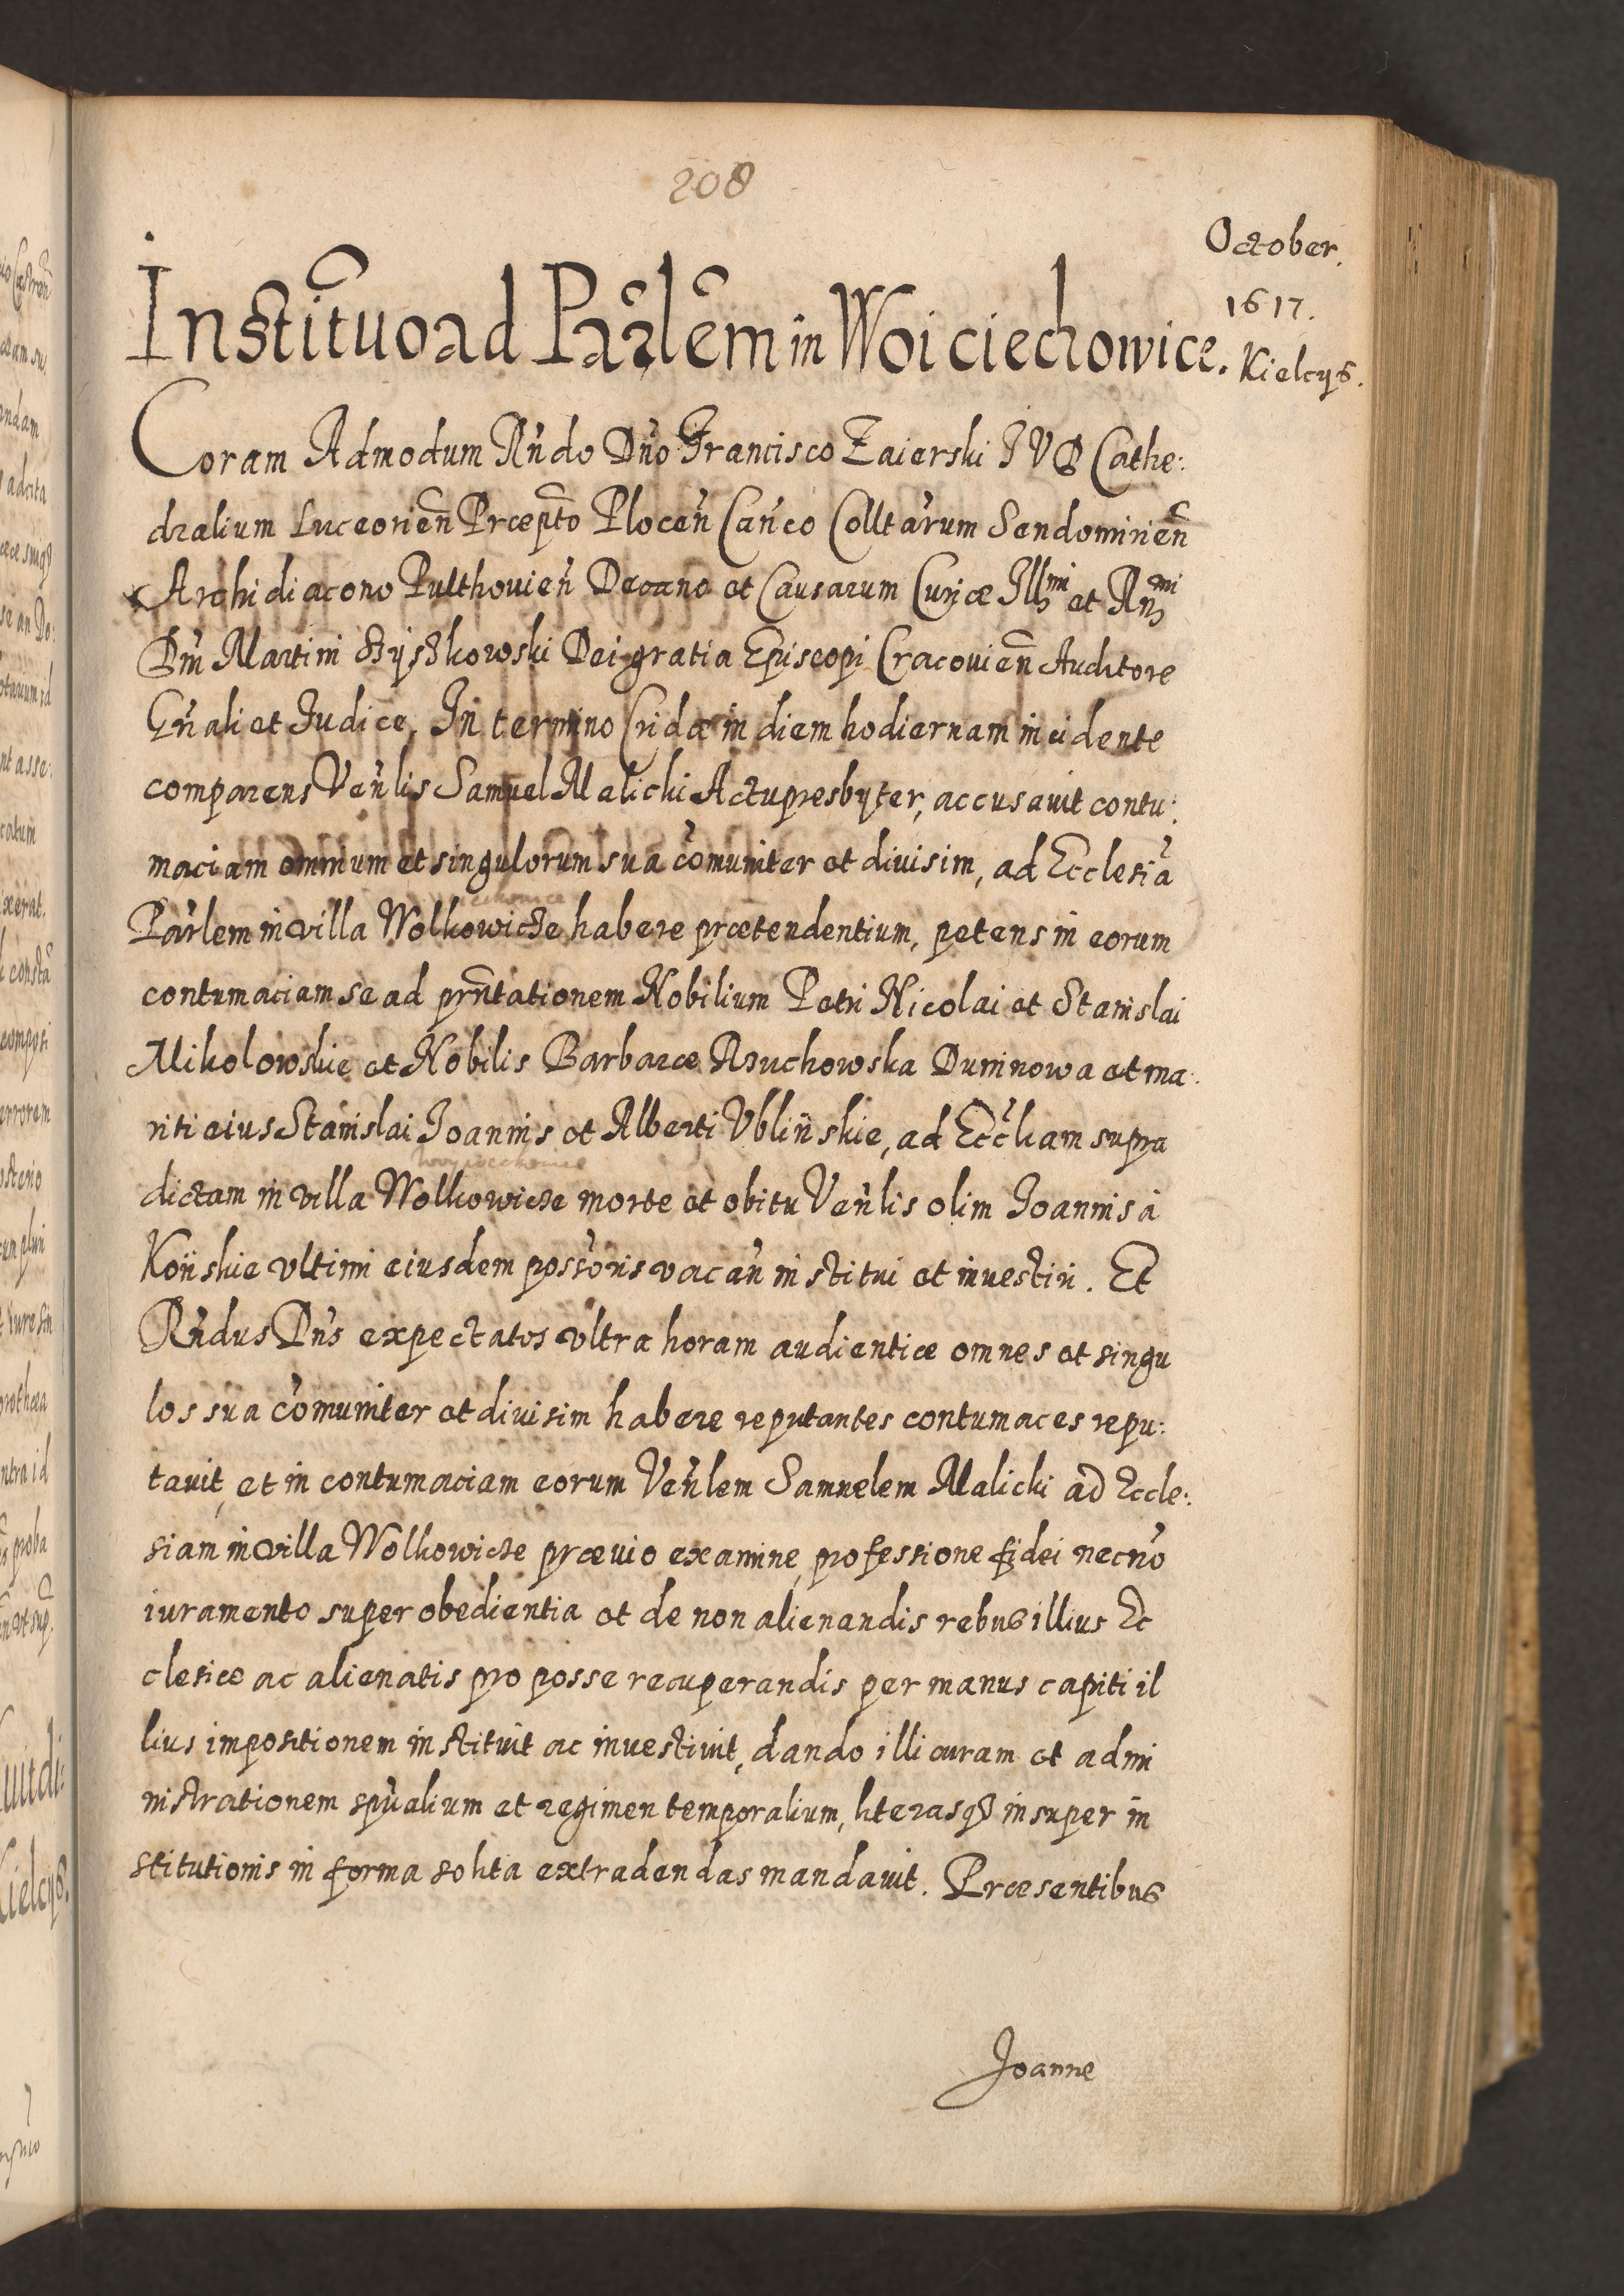 208
October.
1617.
Kielcys.
Institũo ad Parlem in Woiciechowice.
Coram Admodum Rñdo Dño Francisco Zaierski J V D Cathe:
dralium Luceorieñ Præpto Ploceñ Cañco Colltarum Sendomirieñ
Archidiacono Pulthouieñ Decano et Causarum Curiæ Illmi et Rmi
Dñi Martini Szyszkowski Dei gratia Episcopi Cracouieñ Auditore
Gñali et Judice, In termino Cridæ in diem hodiernam incidente
comparens Veñlis Samuel Malicki Actupresbyter, accusauit contu:
maciam omnium et singulorum sua cõmuniter et diuisim, ad Ecclesiã
Parlem in villa Wolkowicze habere prætendentium, petens in eorum
contumaciam se ad prñtationem Nobilium Petri Nicolai et Stanislai
Mikolowskie et Nobilis Barbaræ Rzuchowska Duninowa et ma:
riti eius Stanislai Joannis et Alberti Vbliñskie, ad Eccliam supra
dictam in villa Wolkowicze morte et obitu Veñlis olim Joannis à
Koñskie vltimi eiusdem possoris vacañ institui et inuestiri. Et
Rñdus Dñs expectatos vltra horam audientiæ omnes et singu
los sua cõmuniter et diuisim habere reputantes contumaces repu:
tauit, et in contumaciam eorum Veñlem Samuelem Malicki ad Eccle:
siam in villa Wolkowicze præuio examine, professione fidei necnõ
iuramento super obedientia et de non alienandis rebus illius Ec
clesiæ ac alienatis pro posse recuperandis per manus capiti il
lius impositionem instituit ac inuestiuit, dando illi curam et admi
nistrationem spũalium et regimen temporalium, literasq3 insuper in
stitutionis in forma solita extradendas mandauit. Præsentibus
Joanne